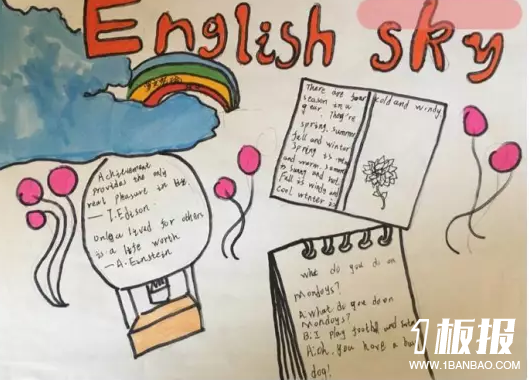 English sky
Achievement
provides the only
real pleasure in life.
— T.Edison.
Only a lived for others
is a life worth
— A.Einstein
There are four
season in a
year. They're
spring, summer
fall and winter
Spring is
and warm. summer
is sunny and hot.
Fall is windy and
cool winter is
cold and windy.
what do you do on
mondays?
A:What do you do on
mondays?
B:I play football and
A:oh, you have a
dog!
1板报
WWW.1BANBAO.COM